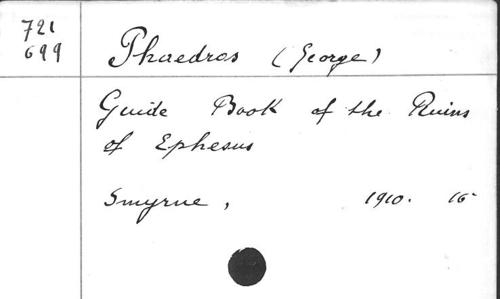 721
699
Phaedros (George)
Guide Book of the Ruins
of Ephesus
Smyrne, 1910. 16